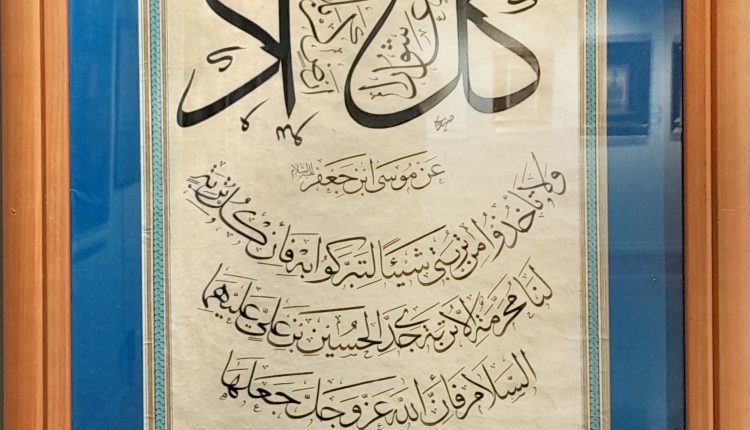 عن موسى ابن جعفر عليه السلام
ولا تأخذوا من تربتي شيئاً لتبركوا به فأن كل تربة
لنا محرمة الا تربة جدي الحسين بن علي عليهما
السلام فأنّ الله عز وجل جعلها